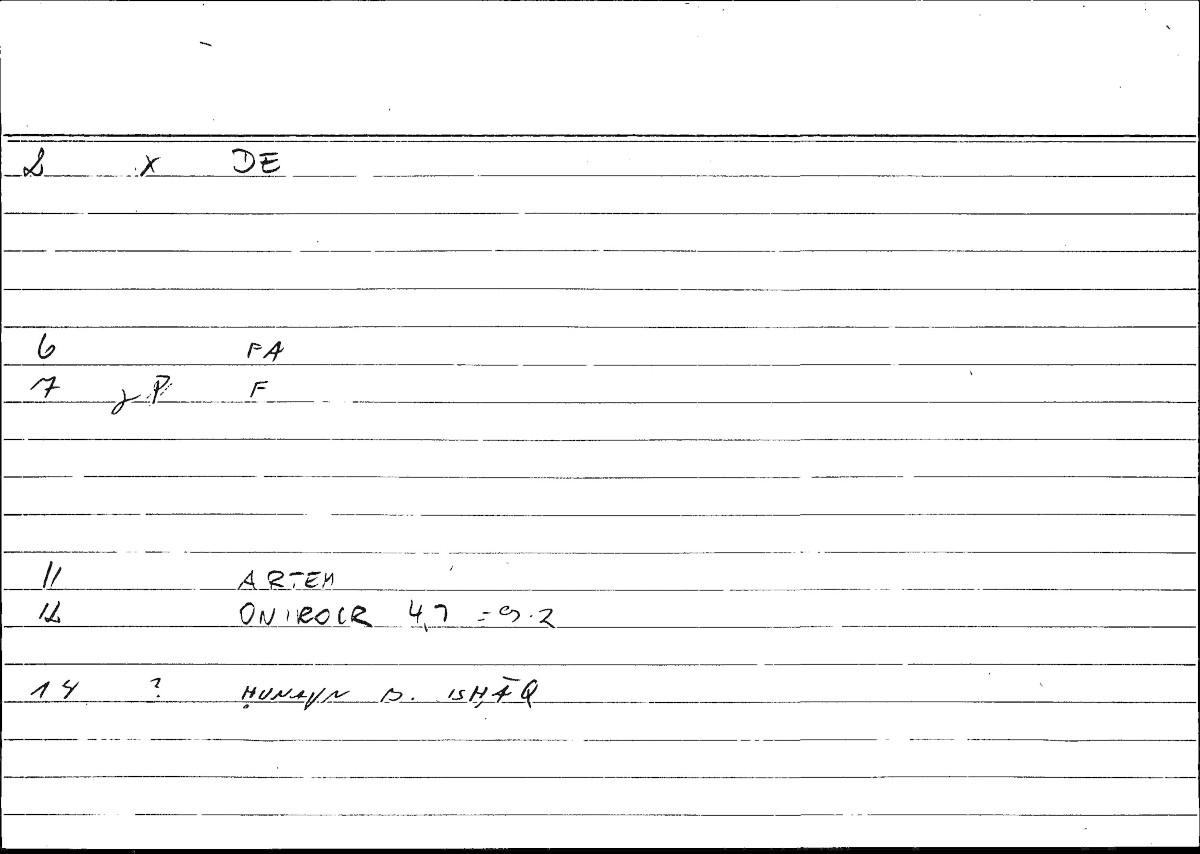 2 x DE
6 FA
7 P F
11 ARTEM
12 ONIROCR 4,7 = 9.2
14 ? ḤUNAYN B. ISḤĀQ